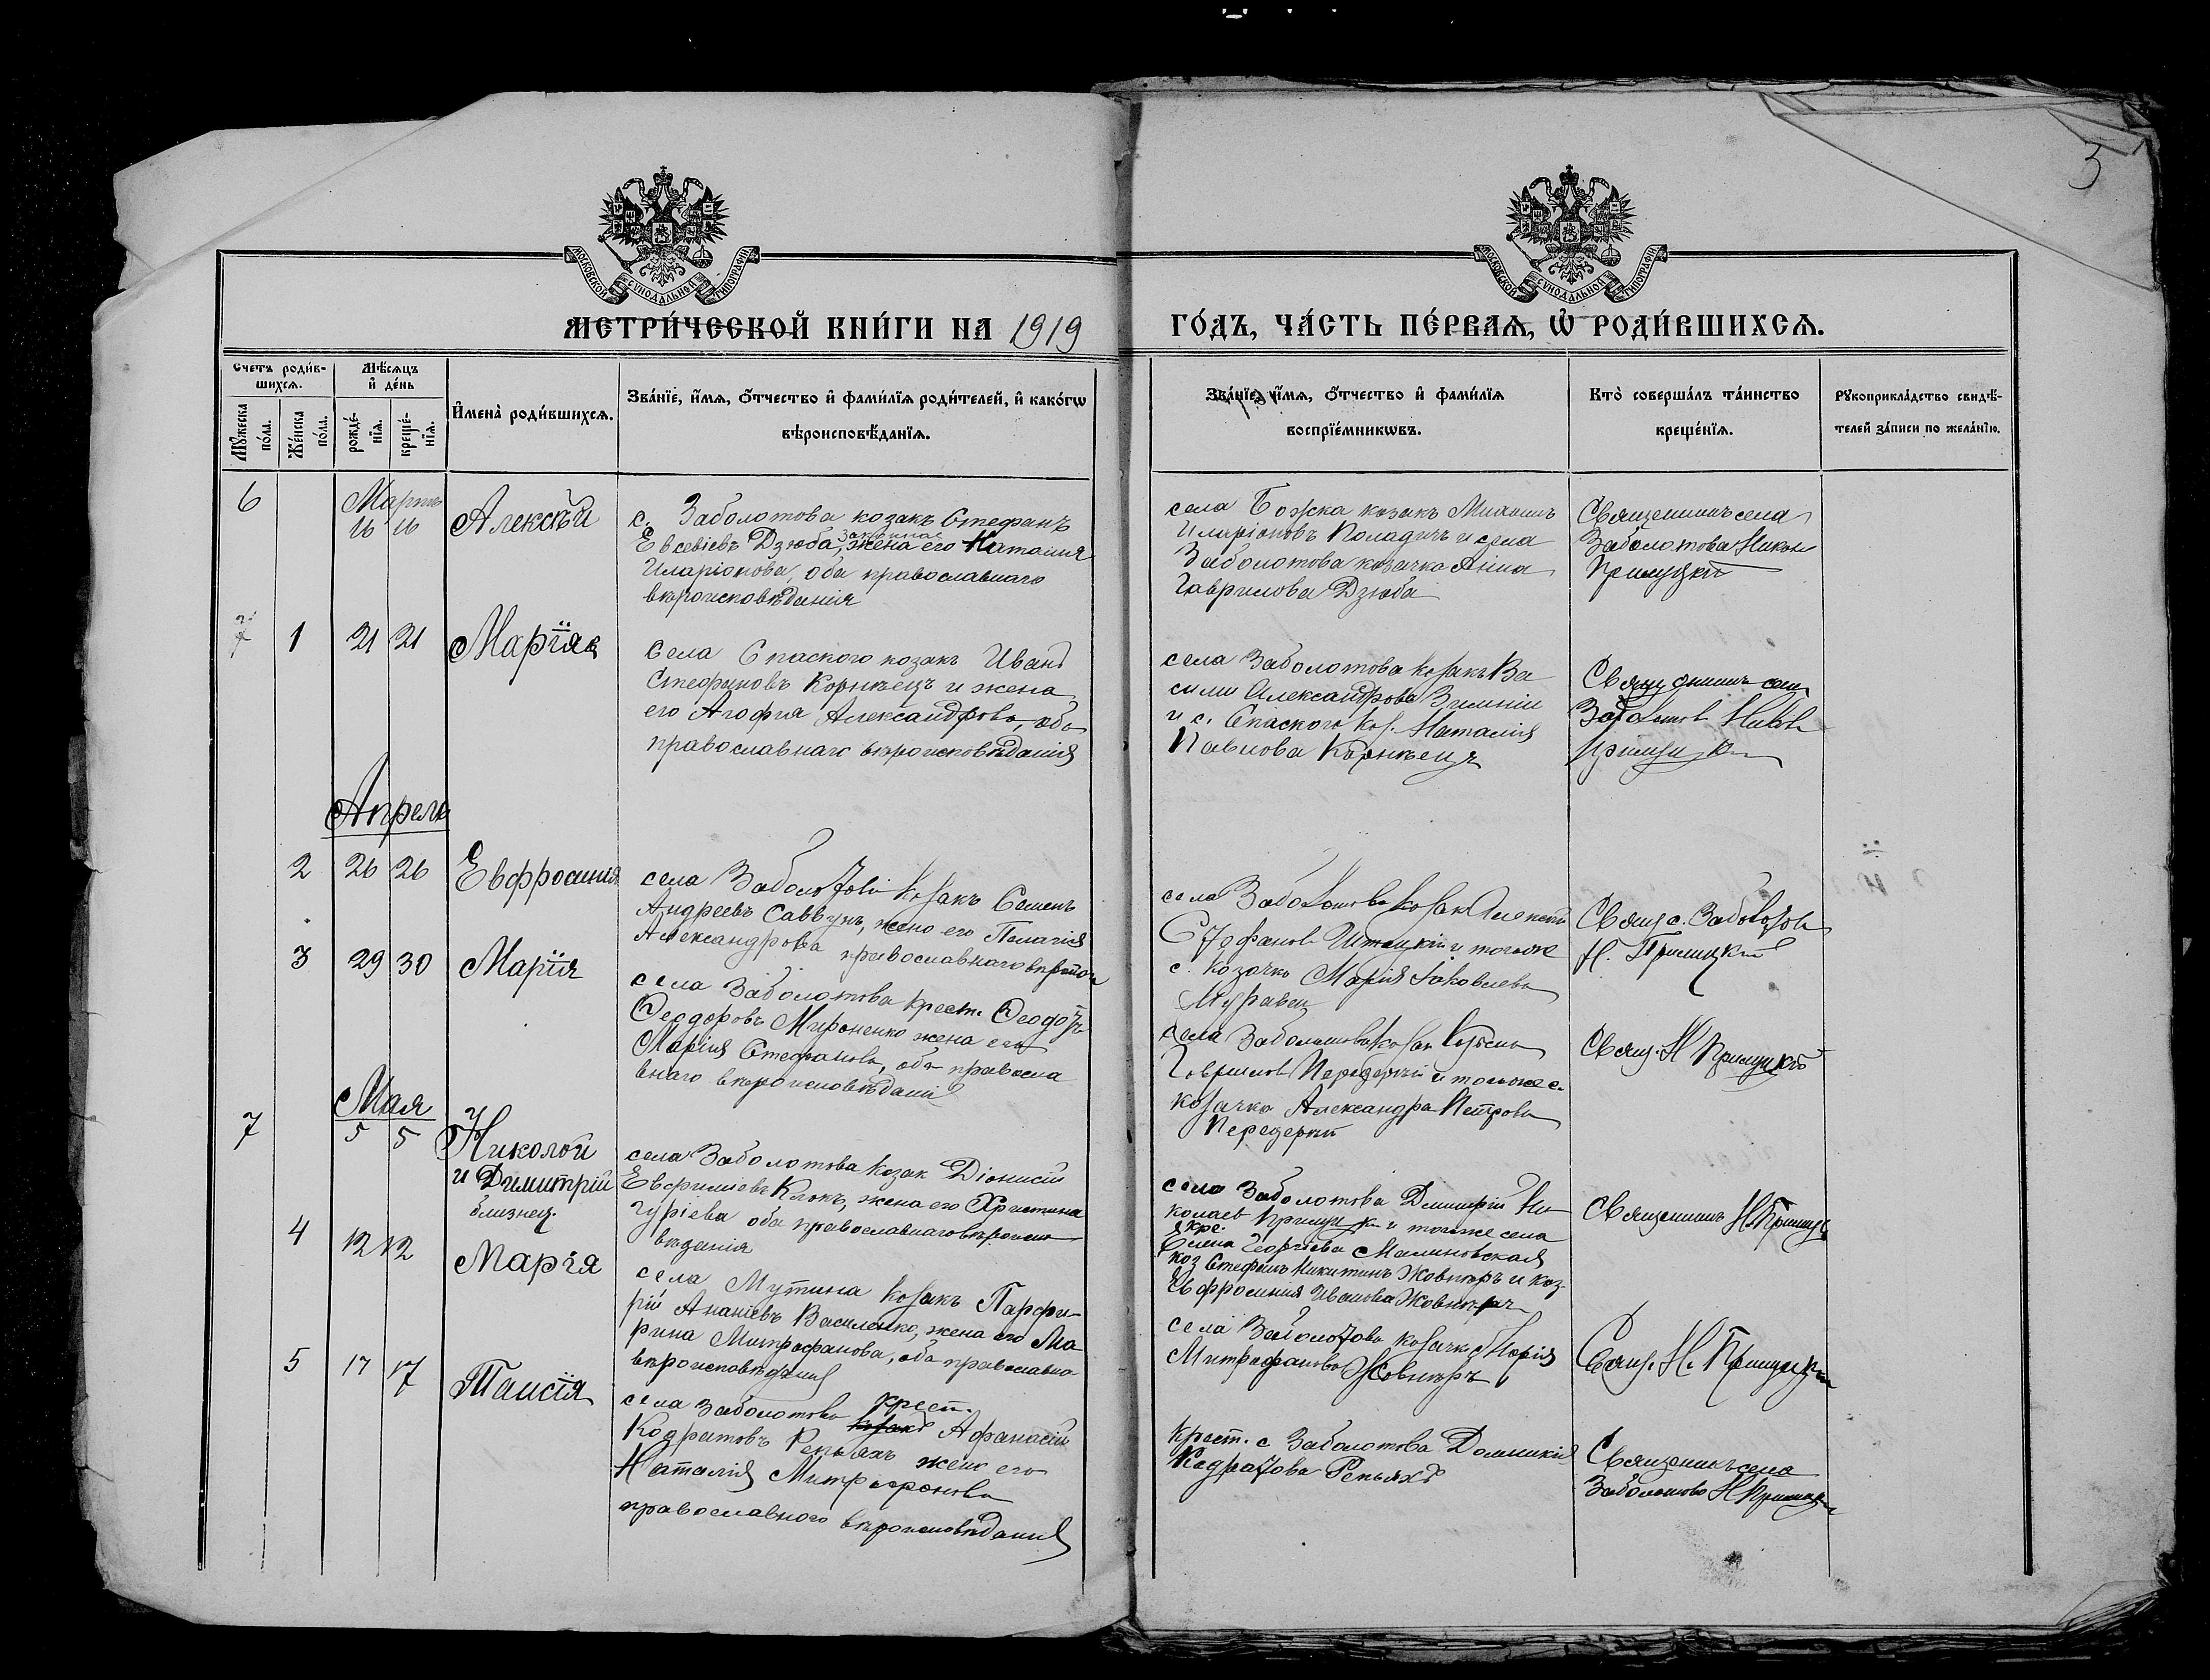 3
МОСКОВСКОЙ СѴНОДАЛЬНОЙ ТИПОГРАФІИ
МОСКОВСКОЙ СѴНОДАЛЬНОЙ ТИПОГРАФІИ
МЕТРИ́ЧЕСКОЙ КНИ́ГИ НА 1919
ГО́ДЪ, ЧА́СТЬ ПЕ́РВАѦ, Ѡ РОДИ́ВШИХСѦ.
Счетъ роди́в-
шихсѧ.
Мѣ́сѧцъ
и де́нь
Мꙋ́жеска
по́ла.
Же́нска
по́ла.
рожде́-
нїѧ.
креще́-
нїѧ.
И҆мена̀ роди́вшихсѧ.
Зва́нїе, и҆́мѧ, ѻ҆́тчество и҆ фами́лїѧ роди́телей, и҆ како́гѡ
вѣроисповѣ́данїѧ.
Зва́нїе, и҆́мѧ, ѻ҆́тчество и҆ фами́лїѧ
воспрїе́мникѡвъ.
Кто̀ соверша́лъ та́инство
креще́нїѧ.
Рꙋкоприкла́дство свидѣ́-
телей за́писи по жела́нїю.
6
Мартъ
16 16
Алексѣй
с. Заболотова козакъ Стефанъ
Евсевіевъ Дзюба, жена его Наталия
Иларіонова, оба православнаго
вѣроисповѣданія
села Божка козакъ Михаилъ
Иларіоновъ Коладичъ и села
Заболотова козачка Анна
Гаврилова Дзюба
Священникъ села
Заболотова Никон
Прилуцкій
1 21 21
Марїя
Села Спаского козакъ Иванъ
Стефановъ Корнѣецъ и жена
его Агафия Александрова, оба
православнаго вѣроисповѣданія
села Заболотова козакъ Ва
силий Александрова Зимній
и с. Спаского коз. Наталия
Павлова Корнѣецъ
Апрель
2 26 26
Евфросиния
села Заболотова козакъ Семенъ
Андреевъ Саввунъ, жена его Пелагія
Александрова православнаго
села Заболотова козак Алексѣй
Стефанов и тогоже
с. козачка Марія Іаковлева
Муравец
Свящ. с. Заболотова
Н. Прилуцкій
3 29 30
Марїя
села Заболотова крест. Ѳеодотъ
Ѳеодоровъ Мироненко жена его
Марія Стефанова, оба правосла
внаго вѣроисповѣданія
села Заболотова козак
Гаврилов Передерій и тогоже с.
козачка Александра Петрова
Передерій
Свящ. Н Прилуцкій
Мая
7
5 5
Николай
и Димитрій
близнец.
села Заболотова козак Діонисій
Евфимиевъ Клокъ, жена его Христина
Гуріева оба православнаго вѣроиспо
вѣданія
села Заболотова Димитрій Ни
колаев Прилуцкій и тогоже села
Елена Георгіева Малиновская
коз Стефанъ Никитинъ Жовнѣръ и коз.
Евфросиния Иванова Жовнѣръ
Священникъ Н. Прилуцкій
4
12 12
Марїя
села Мутина козакъ Парфи-
рій Ананіевъ Василенко, жена его Ма
рина Митрофанова, оба православна
вѣроисповѣдания
села Заболотова козачка Марія
Митрофанова Жовнѣръ
Свящ. Н. Прилуцкій
5 17 17
Таисїя
села Заболотова крест.
козакъ Афанасій
Кодратовъ Репьяхъ жена его
Наталія Митрофанова
православного вѣроисповѣданія
Крест. с Заболотова Домникія
Кодратова Репьяхъ
Священикъ села
Заболотова Н Прилуцкій